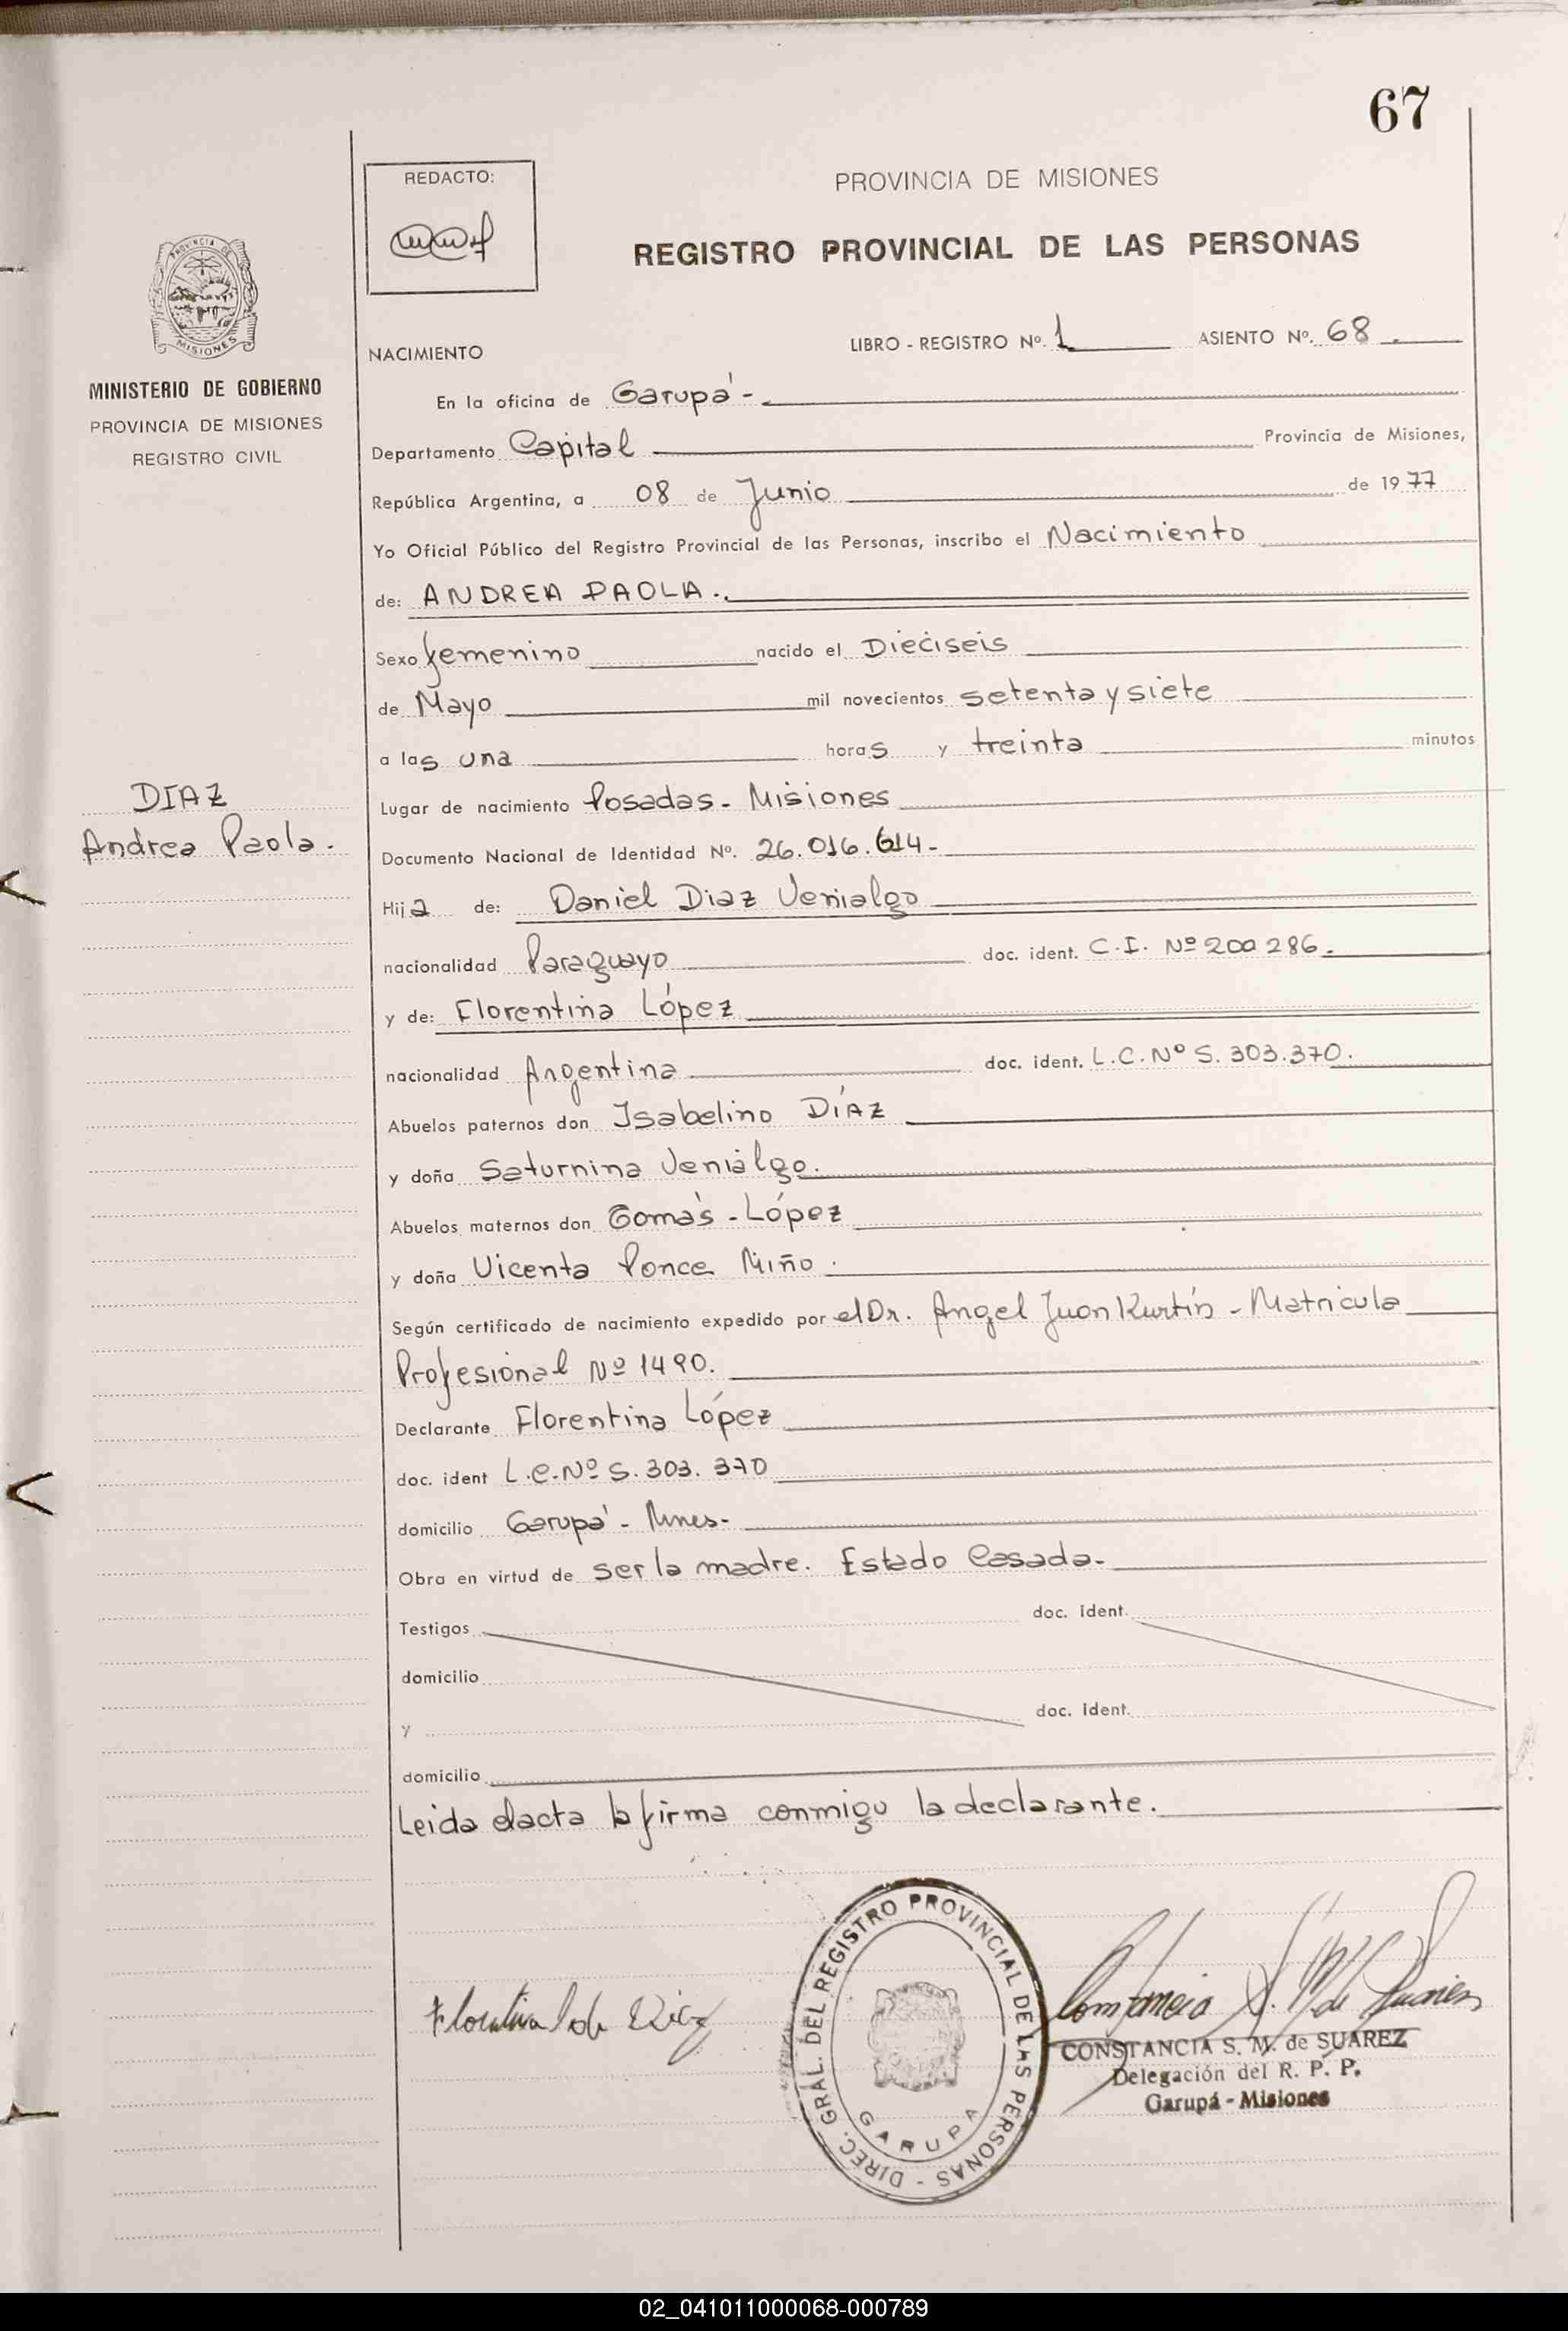 67
REDACTO:
PROVINCIA DE MISIONES
REGISTRO PROVINCIAL DE LAS PERSONAS
PROVINCIA DE
MISIONES
MINISTERIO DE GOBIERNO
PROVINCIA DE MISIONES
REGISTRO CIVIL
NACIMIENTO LIBRO - REGISTRO Nº. 1 ASIENTO Nº. 68.
En la oficina de Garupá-
Departamento Capital Provincia de Misiones,
República Argentina, a 08 de Junio de 1977
Yo Oficial Público del Registro Provincial de las Personas, inscribo el Nacimiento
de: ANDREA PAOLA..
Sexo femenino nacido el Dieciseis
de Mayo mil novecientos setenta y siete
a las una horas y treinta minutos
DIAZ
Andrea Paola.
Lugar de nacimiento Posadas - Misiones
Documento Nacional de Identidad Nº. 26.016.614-
Hija de: Daniel Diaz Venialgo
nacionalidad Paraguayo doc. ident. C.I. Nº 200 286.
y de: Florentina López
nacionalidad Argentina doc. ident. L.C. Nº 5.303.370.
Abuelos paternos don Isabelino DÍAZ
y doña Saturnina Venialgo.
Abuelos maternos don Tomás - López
y doña Vicenta Ponce Miño.
Según certificado de nacimiento expedido por el Dr. Angel Juan Kurtin - Matricula
Profesional Nº 1490.
Declarante Florentina López
doc. ident L.C. Nº 5.303.370
domicilio Garupá - Mnes-
Obra en virtud de ser la madre. Estado Casada-
Testigos doc. ident.
domicilio
y doc. ident.
domicilio
Leida el acta la firma conmigo la declarante.
Florentina L de Diaz
DIREC. GRAL. DEL REGISTRO PROVINCIAL DE LAS PERSONAS -
GARUPA
Constancia S. M. de Suarez
CONSTANCIA S. M. de SUAREZ
Delegación del R. P. P.
Garupá - Misiones
02_041011000068-000789